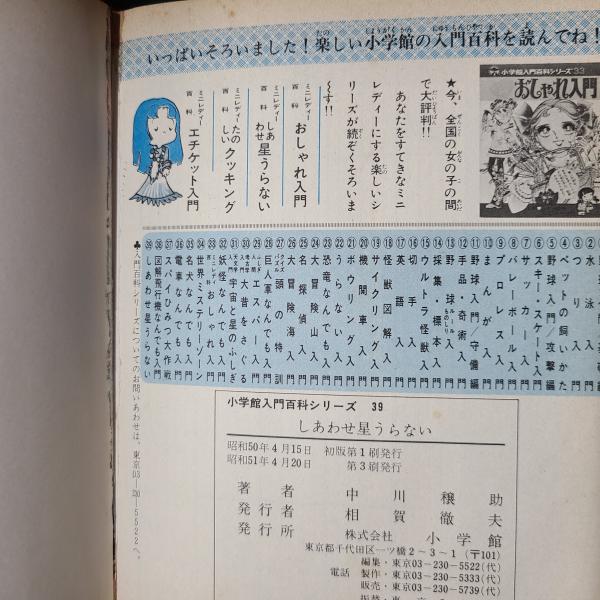 いっぱいそろいました！楽しい小学館の入門百科を読んでね！
小学館入門百科シリーズ33
おしゃれ入門
★今、全国の女の子の間
で大評判!!
あなたをすてきなミニ
レディーにする楽しいシ
リーズが続ぞくそろいま
〜す!!
ミニレディー百科 おしゃれ入門
ミニレディー百科 しあわせ星うらない
ミニレディー百科 たのしいクッキング
ミニレディー百科 エチケット入門
②水泳入門
③つり入門
④ペットの飼いかた
⑤野球入門／攻撃編
⑥スキー・スケート入門
⑦サッカー入門
⑧バレーボール入門
⑨プロレス入門
⑩まんが入門
⑪野球入門／守備編
⑫手品・奇術入門
⑬野球ルールものしり入門
⑭採集・標本入門
⑮ウルトラ怪獣入門
⑯切手入門
⑰英語入門
⑱怪獣図解入門
⑲サイクリング入門
⑳機関車入門
㉑ボウリング入門
㉒うらない入門
㉓恐竜なんでも入門
㉔大冒険山入門
㉕名探偵入門
㉖大冒険海入門
㉗クイズパズル頭の特訓
㉘巨人軍なんでも入門
㉙エスパー入門
㉚考古学入門大昔をさぐる
㉛天文学入門宇宙と星のふしぎ
㉜妖怪なんでも入門
㉝ミニレディー百科おしゃれ入門
㉞世界ミステリーゾーン
㉟名犬なんでも入門
㊱電車なんでも入門
㊲スパイひみつ大作戦
㊳図解飛行機なんでも入門
㊴しあわせ星うらない
♣入門百科シリーズについてのお問いあわせは、東京03-230-5522へ。
小学館入門百科シリーズ 39
しあわせ星うらない
昭和50年4月15日 初版第1刷発行
昭和51年4月20日 第3刷発行
著者 中川穣助
発行者 相賀徹夫
発行所 株式会社 小学館
東京都千代田区一ツ橋2〜3〜1（〒101）
編集・東京03-230-5522(代)
電話 製作・東京03-230-5333(代)
販売・東京03-230-5739(代)